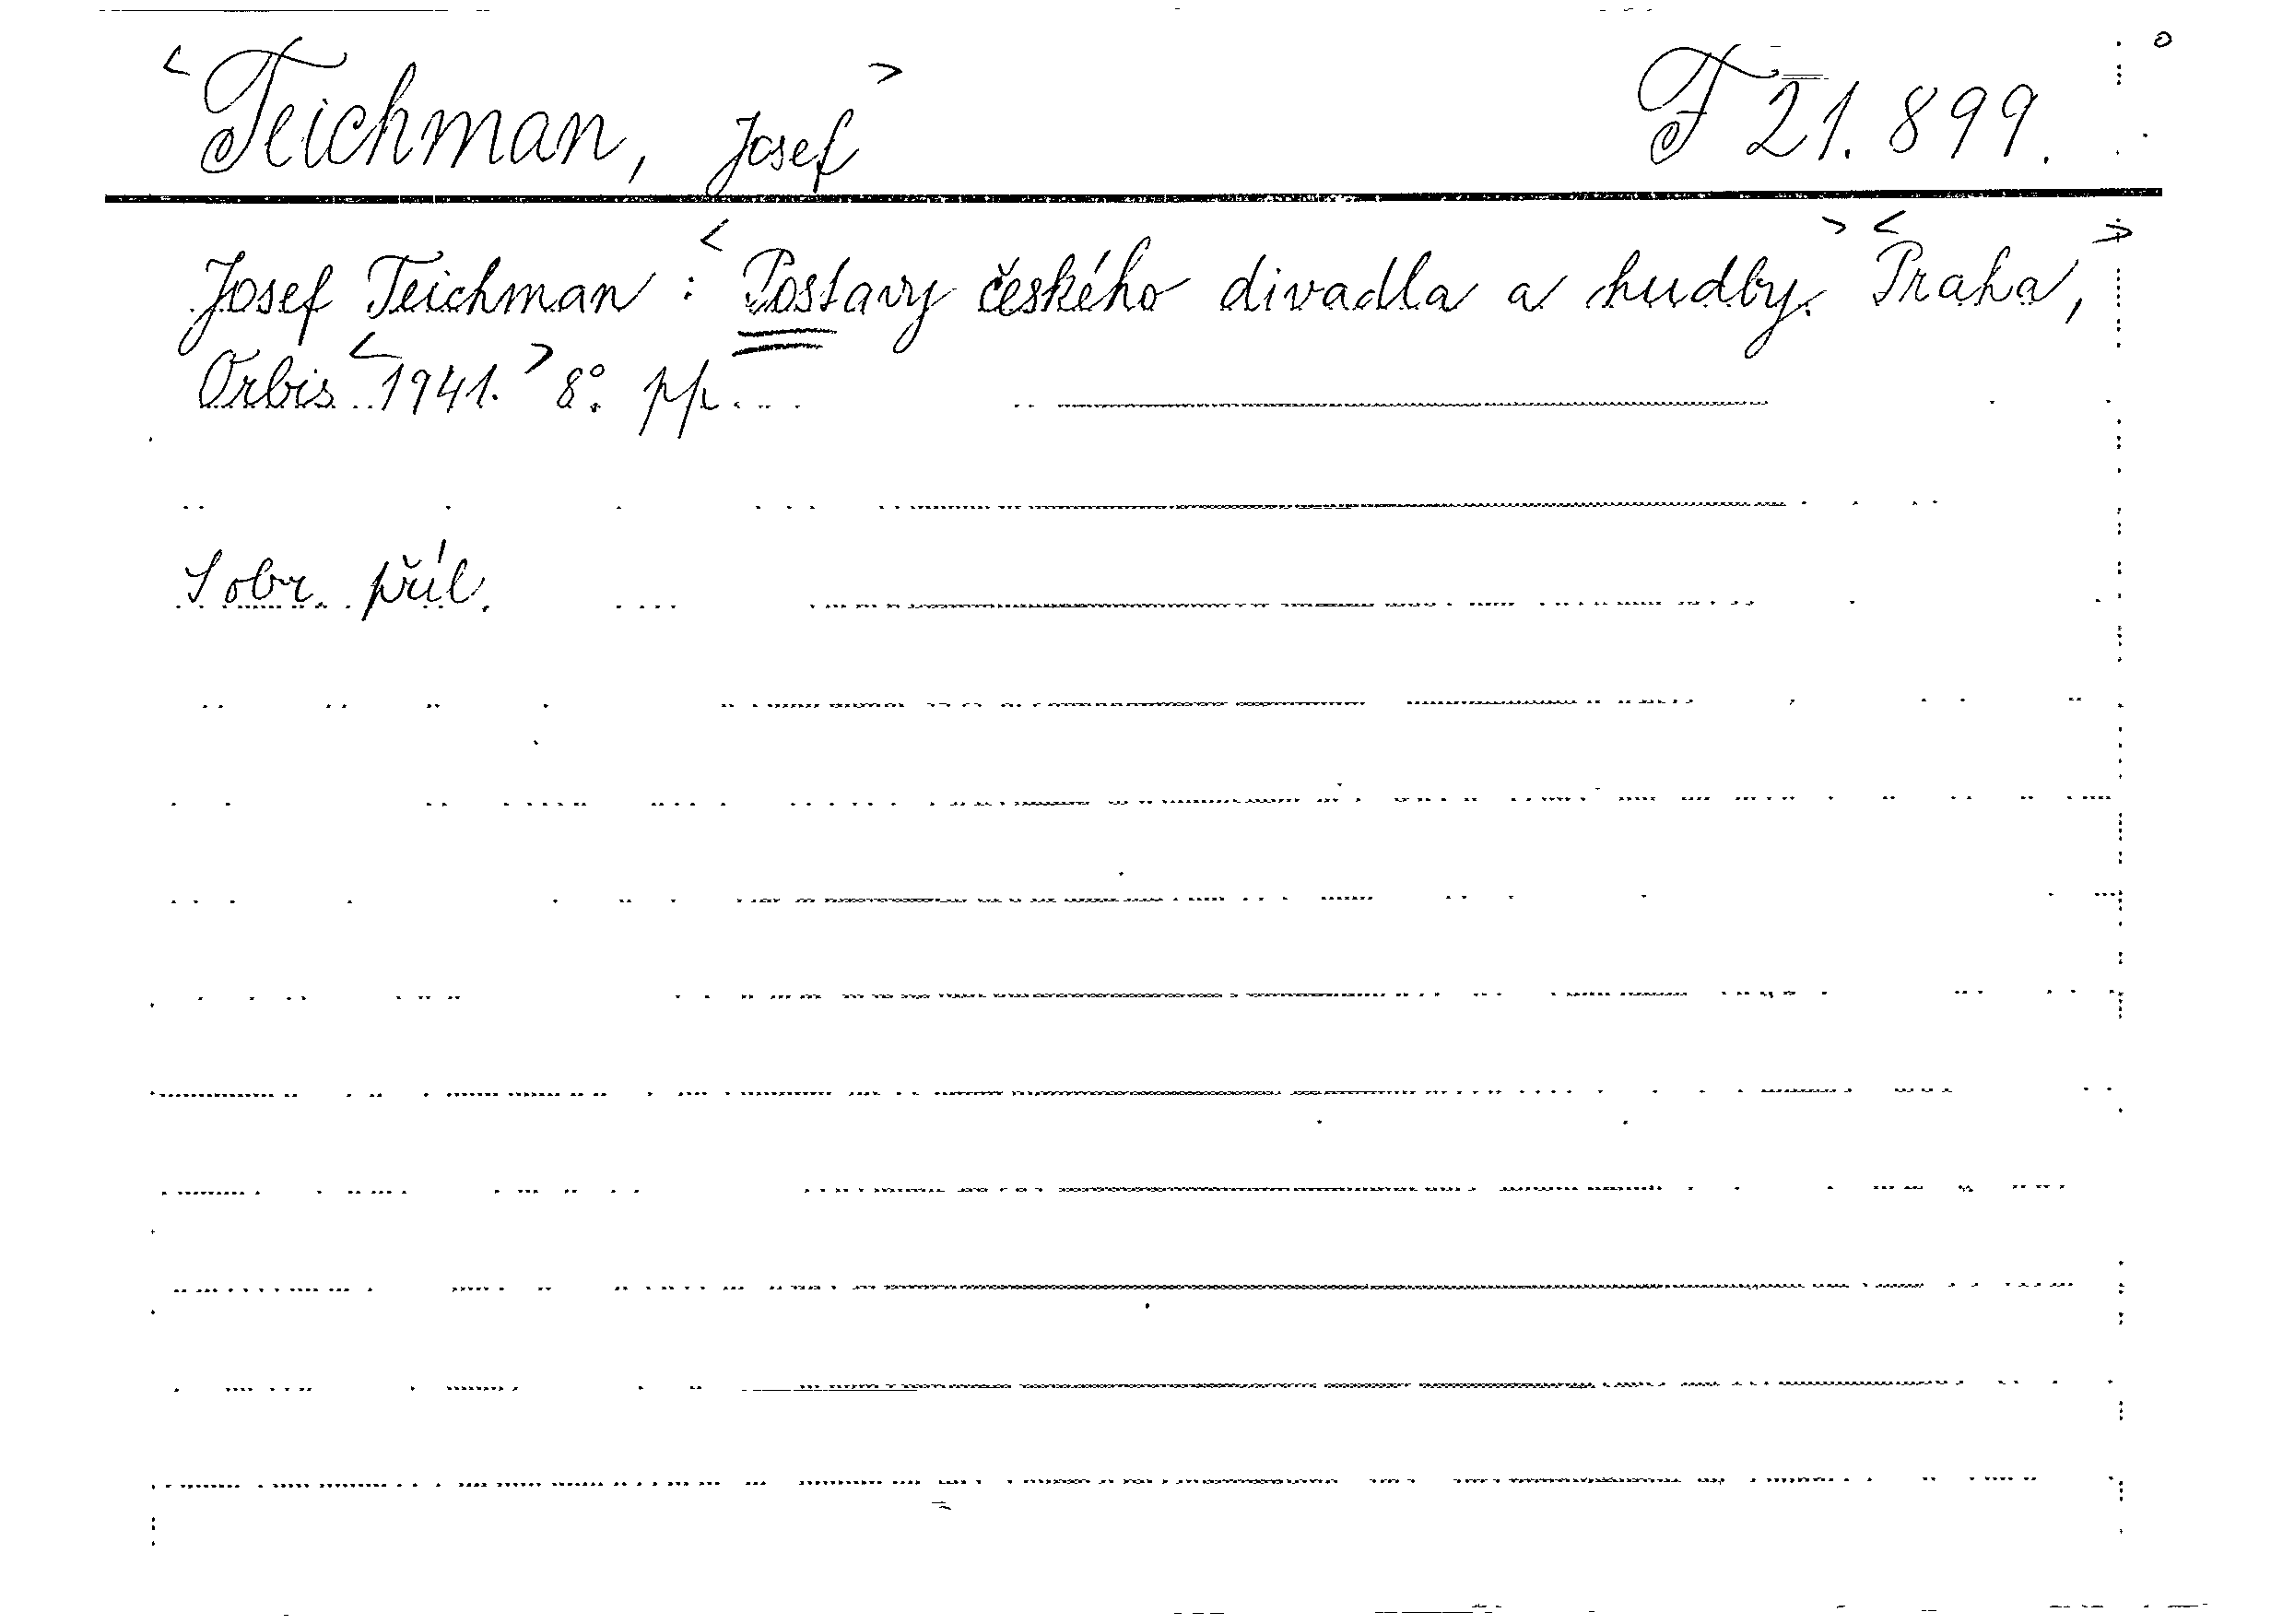 <Teichman, Josef> F 21.899.
Josef Teichman : <Postavy českého divadla a hudby.> <Praha,>
Orbis <1941.> 8°. pp.
S obr. příl.